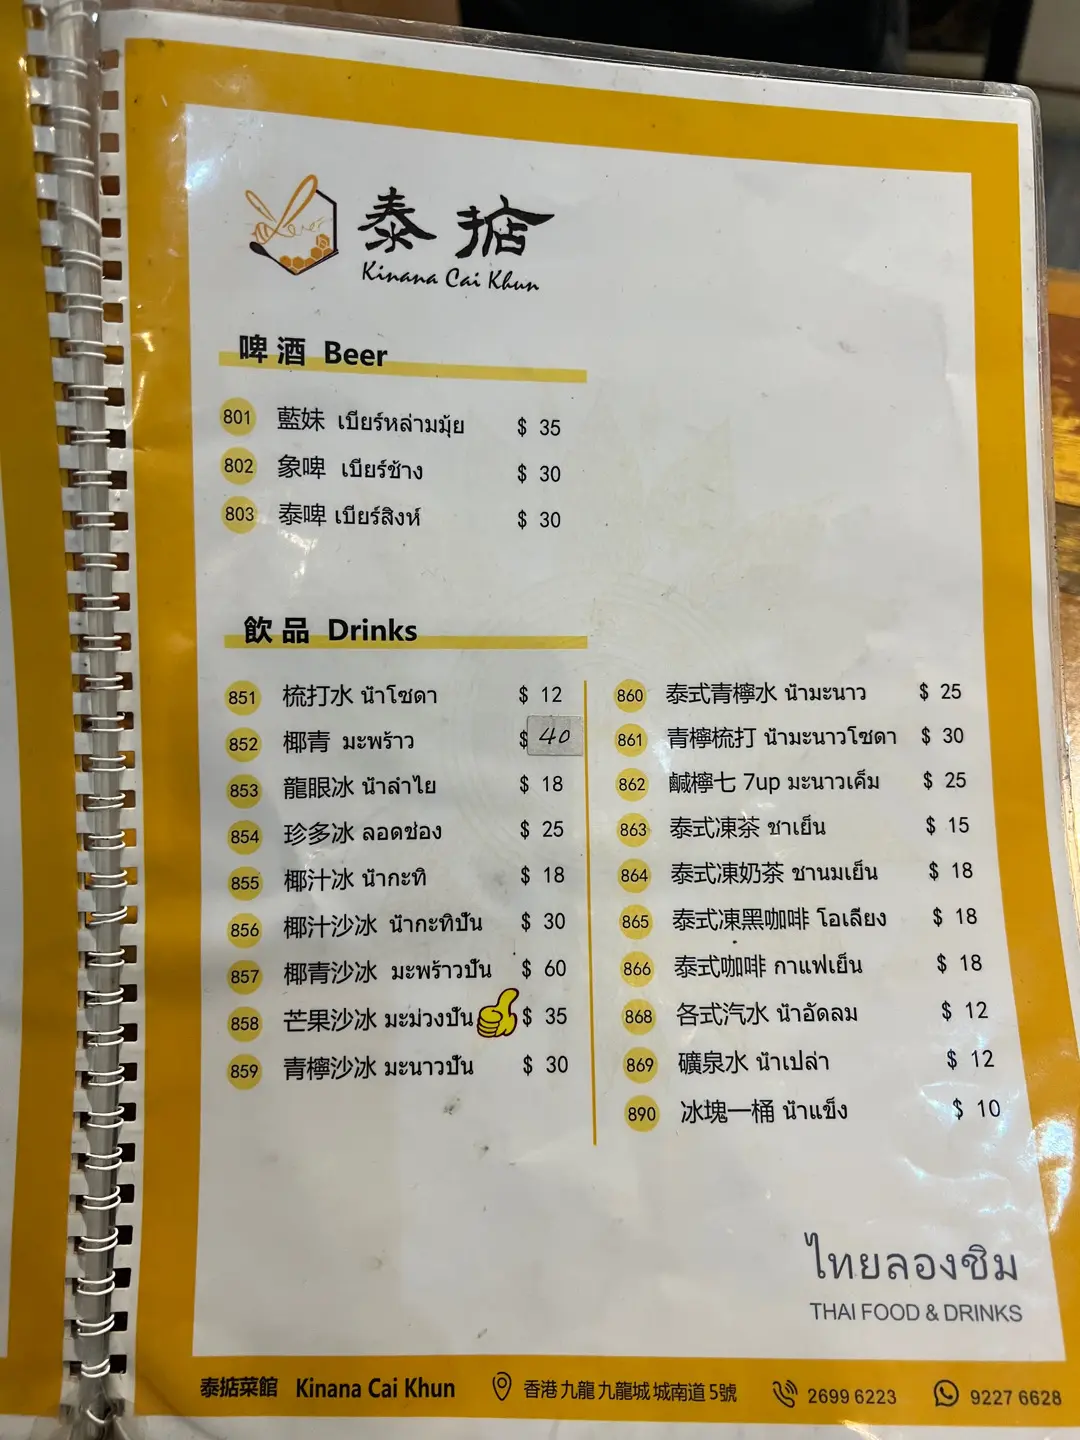 泰掂
Kinana Cai Khun
啤酒 Beer
801 藍妹 เบียร์หล่ามมุ้ย $ 35
802 象啤 เบียร์ช้าง $ 30
803 泰啤 เบียร์สิงห์ $ 30
飲品 Drinks
851 梳打水 น้ำโซดา $ 12
852 椰青 มะพร้าว $ 40
853 龍眼冰 น้ำลำไย $ 18
854 珍多冰 ลอดช่อง $ 25
855 椰汁冰 น้ำกะทิ $ 18
856 椰汁沙冰 น้ำกะทิปั่น $ 30
857 椰青沙冰 มะพร้าวปั่น $ 60
858 芒果沙冰 มะม่วงปั่น $ 35
859 青檸沙冰 มะนาวปั่น $ 30
860 泰式青檸水 น้ำมะนาว $ 25
861 青檸梳打 น้ำมะนาวโซดา $ 30
862 鹹檸七 7up มะนาวเค็ม $ 25
863 泰式凍茶 ชาเย็น $ 15
864 泰式凍奶茶 ชานมเย็น $ 18
865 泰式凍黑咖啡 โอเลี้ยง $ 18
866 泰式咖啡 กาแฟเย็น $ 18
868 各式汽水 น้ำอัดลม $ 12
869 礦泉水 น้ำเปล่า $ 12
890 冰塊一桶 น้ำแข็ง $ 10
ไทยลองชิม
THAI FOOD & DRINKS
泰掂菜館 Kinana Cai Khun 香港九龍九龍城城南道5號 2699 6223 9227 6628